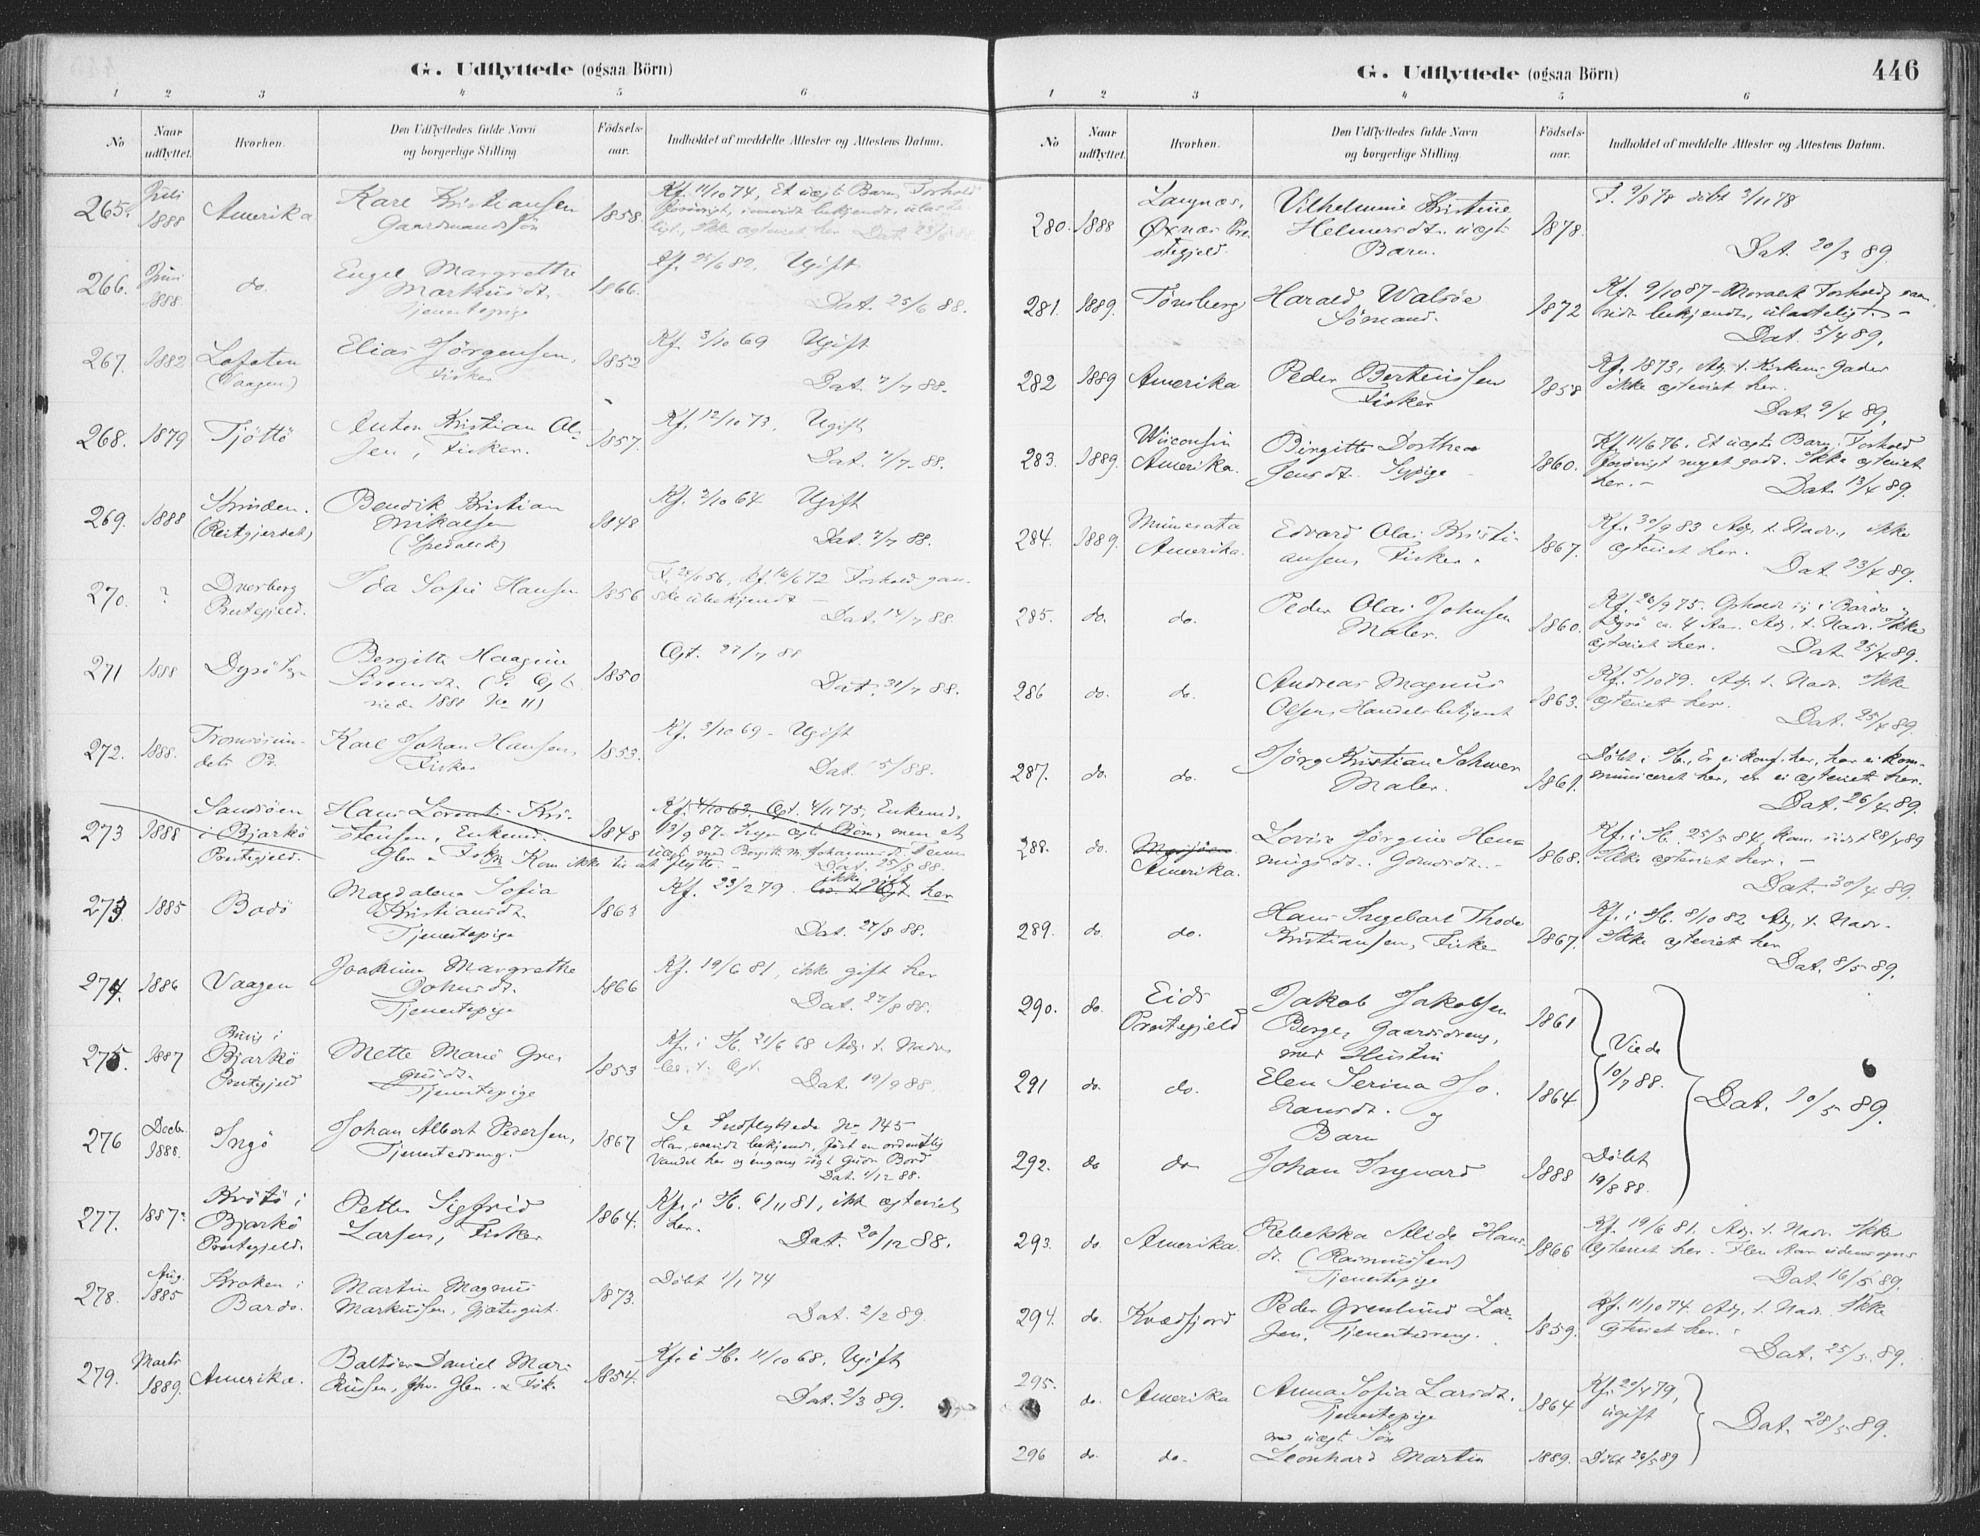 G. Udflyttede (ogsaa Börn)
1 2 3 4 5 6
No
Naar udflyttet.
Hvorhen.
Den Udflyttedes fulde Navn
og borgerlige Stilling
Födsels-
aar.
Indholdet af meddelte Attester og Attestens Datum.
265. Juli 1888 Amerika Karl Kristiansen 1858. Kf. 11/10 74, Et uægt Barn, Forhold
Gaardmandssön
266. Juni 1888 do. Engel Margrethe 1866. Kf. 25/6 82. Ugift
Markusdt.
Tjenestepige Dat. 25/6 88.
267. 1882 Lofoten Elias Jörgensen, 1852 Kf. 3/10 69 Ugift
(Vaagen) Fisker Dat. 7/7 88.
268. 1879 Tjöttö Anton Kristian Ol- 1857. Kf. 12/10 73. Ugift
sen, Fisker. Dat. 7/7 88.
269. 1888 Strinden. Bendik Kristian 1848 Kf. 2/10 64 Ugift
(Reitgjerdet) Mikalsen
(Spedalsk) Dat. 7/7 88.
270. ? Dverberg Ida Sofie Hansen 1856 Kf. 16/6 72 Forhold gan-
Prestegjeld. ske ubekjendt
Dat. 14/7 88.
271 1888 Dyrö Bergitte Haagine 1850 Ægt. 27/7 88
Sörensdt.
viede 1888 No 11) Dat. 31/7 88.
272. 1888. Tromsösun- Karl Johan Hansen, 1853. Kf. 3/10 69 - Ugift
dets Pr. Fisker Dat. 15/8 88.
273 1888 Sandsöen Hans Lorents Kri- 1848 Kf. 4/10 63. Ægt. 4/11 75, Enkemd.
i Bjarkö stensen, Enkemd. 13/9 87.
Prestegjeld. Kom ikke til at flytte - Dat. 25/8 88.
273. 1885 Bodö Magdalena Sofia 1863 Kf. 23/2 79. ikke gift her
Kristiansdt.
Tjenestepige Dat. 27/8 88.
274. 1886 Vaagen Joakima Margrethe 1866 Kf. 19/6 81, ikke gift her
Johnsdt.
Tjenestepige Dat. 27/8 88.
275. 1887 Bjarkö Mette Marie Gre- 1853 Kf. i H. 21/6 68 Adg. t. Nadv.
Prestegjeld gusdt.
Tjenestepige Dat. 19/9 88.
276 Decb. 1888. Ingö Johan Albert Pedersen, 1867 Se Indflyttede No 145
Tjenestedreng. Har, saavidt bekjendt, fört en ordentlig
Vandel her og engang sögt Guds Bord
Dat. 4/12 88.
277. 1887? Krötö i Petter Sigfrid 1864. Kf. i H. 6/11 81, ikke ægteviet
Bjarkö Larsen, Fisker her.
Prestegjeld. Dat. 20/12 88.
278. Aug. 1885 Kroken i Martin Magnus 1873. Döbt 1/1 74
Bardo. Markussen, Gjætergut. Dat. 2/2 89.
279. Marts 1889. Amerika. Baltser Daniel Mar- 1854. Kf. i H. 11/10 68, Ugift
kussen, Dat. 2/3 89.
G. Udflyttede (ogsaa Börn)
446
1 2 3 4 5 6
No
Naar udflyttet.
Hvorhen.
Den Udflyttedes fulde Navn
og borgerlige Stilling
Födsels-
aar.
Indholdet af meddelte Attester og Attestens Datum.
280. 1888 Langnæs, Vilhelmine Kristine 1878. F. 9/8 78 döbt 3/11 78
Öxnæs Pre- Helmersdt. uægt
stegjeld. Barn. Dat. 20/3 89.
281. 1889. Tönsberg Harald Walsöe 1872 Kf. 9/10 87 - Moralsk Forhold, saa-
Sömand. vidt bekjendt, ulasteligt -
Dat. 5/4 89.
282 1889 Amerika Peder Berteussen 1858 Kf. 1873, Adg. t. Kirkens Goder
Fisker ikke ægteviet her.
Dat. 9/4 89.
283. 1889. Wisconsin Birgitte Dorthea 1860. Kf. 11/6 76. Et uægte Barn. Forhold
Amerika. Jensdt. Sypige forövrigt meget godt. Ikke ægteviet
her. - Dat. 13/4 89.
284. 1889. Minnesota Edvard Olai Kristi- 1867. Kf. 30/9 83 Adg. t. Nadv., ikke
Amerika. ansen, Fisker. ægteviet her.
Dat. 23/4 89.
285. do. do. Peder Olai Johnsen 1860. Kf. 26/9 75. Opholdt sig i Bardo og
Maler. Dyrö ca. 4 Aar. Adg. t. Nadv. Ikke
ægteviet her. Dat. 25/4 89.
286 do. do. Andreas Magnus 1863. Kf. 5/10 79. Adg. t. Nadv. Ikke
Olsen, Handelsbetjent ægteviet her.
Dat. 25/4 89.
287. do. do. Jörg Kristian Schwer 1861. Döbt i H., Er ei konf. her, har ei kom-
Maler. municeret her, er ei ægteviet her.
Dat. 26/4 89.
288. do. Amerika. Lovise Jörgine Hen- 1868. Kf. i H. 25/5 84, kom. sidst 28/4 89
ningsdt. Gaardsdt. Ikke ægteviet her. -
Dat. 30/4 89.
289. do. do. Hans Ingebart Thode 1867. Kf. i H. 8/10 82 Adg. t. Nadv.
Kristiansen, Fisker Ikke ægteviet her
Dat. 8/5 89.
290. do. Eids Jakob Jakobsen 1861
Prestegjeld Berge, Gaardsdreng, Viede
med Hustru 10/7 88.
291 do. do. Elen Serina Jo- 1864. Dat. 10/5 89.
hansdt. og
Barn
292. do do Johan Ingvard 1888 Döbt
19/8 88.
293. do. Amerika. Rebekka Alide Hans- 1866 Kf. 19/6 81. Adg. t. Nadv. Ikke
dt. (Rasmussen) ægteviet her. Flere Aar udensogns
Tjenestepige Dat. 16/5 89.
294. do. Kvædfjord Peder Grenlund Lar- 1859. Kf. 11/10 74. Adg. t. Nadv. Ikke
sen, Tjenestedreng. ægteviet her.
Dat. 25/5 89.
295. do. Amerika Anna Sofia Larsdt. 1864 Kf. 20/4 79,
Tjenestepige ugift
med uægt. Sön Dat. 28/5 89.
296 do. do. Leonhard Martin 1889. Döbt 26/5 89